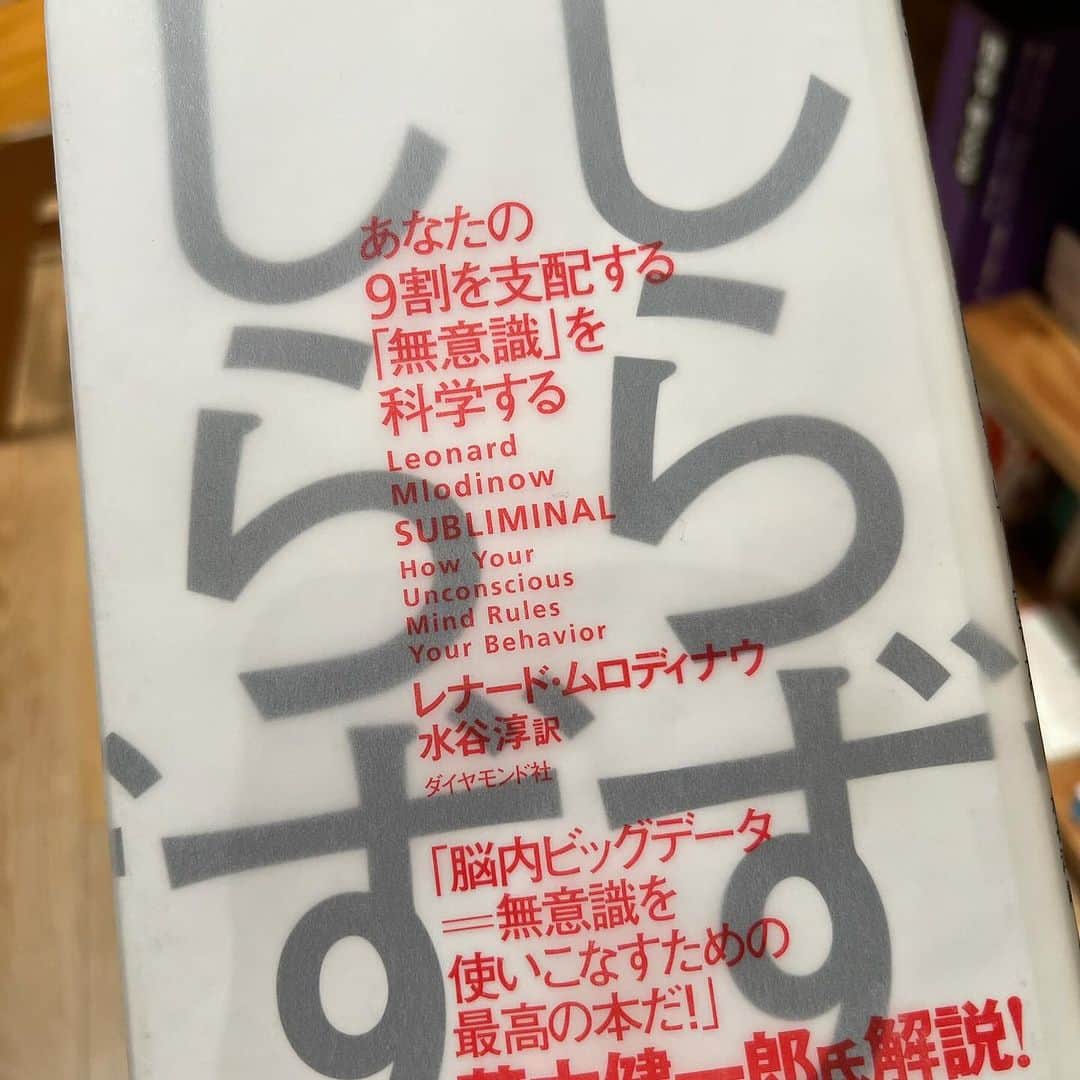 しらず
しらず
あなたの
9割を支配する
「無意識」を
科学する
Leonard
Mlodinow
SUBLIMINAL
How Your
Unconscious
Mind Rules
Your Behavior
レナード・ムロディナウ
水谷淳訳
ダイヤモンド社
「脳内ビッグデータ
=無意識を
使いこなすための
最高の本だ!」
茂木健一郎氏解説!